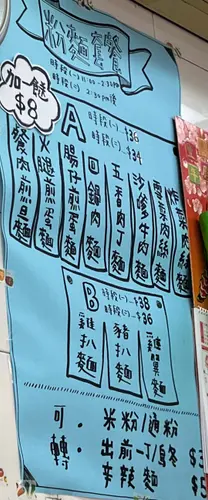 粉麵套餐
時段(一) 11:00-2:30pm
時段(二) 2:30pm後
加一餸
$8
A
時段(一)-$36
時段(二)-$34
餐肉煎蛋麵
火腿煎蛋麵
腸仔煎蛋麵
回鍋肉麵
五香肉丁麵
沙爹牛肉麵
雪菜肉絲麵
榨菜肉絲麵
B
時段(一)-$38
時段(二)-$36
雞扒麵
豬扒麵
雞翼麵
可轉:
米粉/通粉
出前一丁/烏冬
辛辣麵